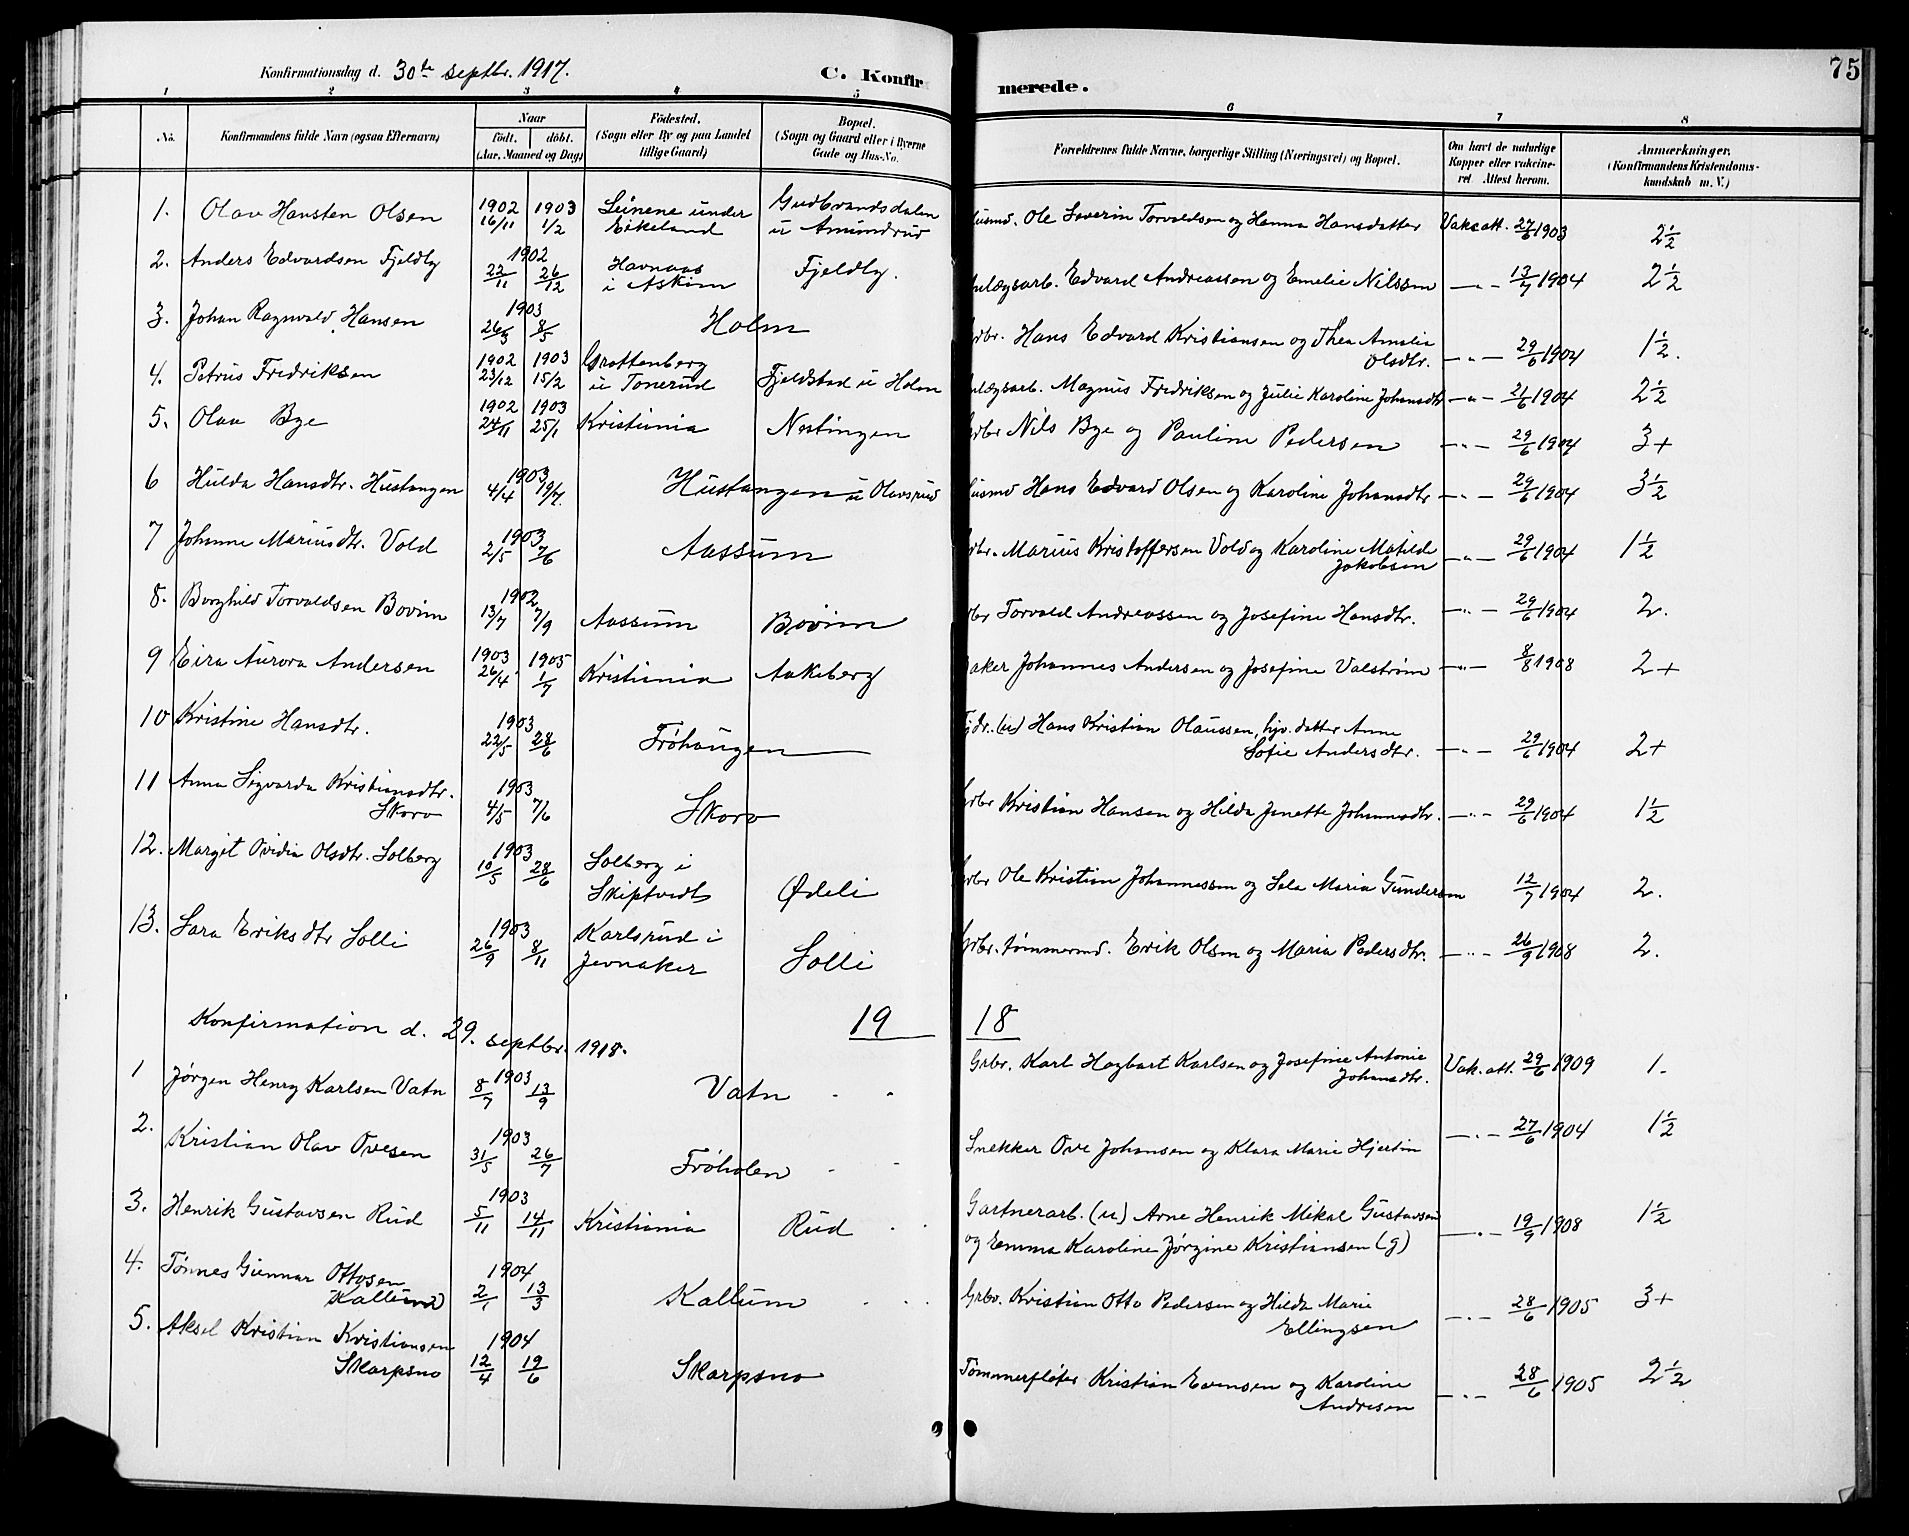 75
Konfirmationsdag d. 30te septbr. 1917. C. Konfirmerede.
1 2 3 4 5 6 7 8
No. Konfirmandens fulde Navn (ogsaa Efternavn) Naar født. døbt. (Aar, Maaned og Dag) Fødested. (Sogn eller By og paa Landet tillige Gaard) Bopæl. (Sogn og Gaard eller i Byerne Gade og Hus-No. Forældrenes fulde Navne, borgerlige Stilling (Næringsvei) og Bopæl. Om havt de naturlige Kopper eller vaccineret Attest herom. Anmærkninger. (Konfirmandens Kristendomskundskab m. V.)
1. Olav Hansten Olsen 1902 16/11 1903 1/2 under Eikeland Gudbrandsdalen u Amundrud Husmd. Ole Severin Torvaldsen og Hanna Hansdatter Vaks att. 27/6 1903 2 1/2
2. Anders Edvardsen Fjeldby 1902 22/11 26/12 Havnaas i Askim Fjeldby. Anlægsarb. Edvard Andreassen og Emelie Nilssen — " — 13/7 1904 2 1/2
3. Johan Ragnvald Hansen 1903 26/3 8/5 Holm Grbr. Hans Edvard Kristiansen og Thea Amalia
Olsdtr. — " — 29/6 1904 1 1/2.
4. Petrus Fredriksen 1902 23/12 1903 15/2 Grottenberg u Tonerud Fjeldstad u Holm Anlægsarb. Magnus Fredriksen og Julie Karoline Johansdtr — " — 21/6 1904 2 1/2
5. Olav Bye 1902 24/11 1903 25/1 Kristiania Nestingen Grbr Nils Bye og Pauline Pedersen — " — 29/6 1904 3+
6 Hulda Hansdtr. Hustangen 1903 4/4 19/7. Hustangen u Olavsrud Husmd Hans Edvard Olsen og Karoline Johansdtr — " — 29/6 1904 3 1/2
7 Johanne Mariusdtr. Vold 1903 2/5 7/6 Aassum Grbr. Marius Kristoffersen Vold og Karoline Matilde
Jakobsen — " — 29/6 1904 1 1/2
8. Borghild Torvaldsen Bovim 1902 13/7 7/9 Aassum Bövim Grbr Torvald Andreassen og Josefine Hansdtr. — " — 29/6 1904 2.
9 Eira Aurora Andersen 1903 26/4 1905 1/7 Kristiania Aakeberg Johannes Andersen og Josefine Valstrøm — " — 8/8 1908 2+
10 Kristine Hansdtr. 1903 22/5 28/6 Fröhaugen (u) Hans Kristian Olaussen, hjv. datter Anne
Sofie Andersdtr. — " — 29/6 1904 2+
11 Anna Sigvarda Kristiansdtr.
Skoro 1903 4/5 7/6 Skoro Grbr Kristian Hansen og Hilda Janette Johannesdtr. — " — 29/6 1904 1 1/2
12. Margit Ovidia Olsdtr. Solberg 1903 10/5 28/6 Solberg i Skiptvedt Ødeli Grbr Ole Kristian Johannessen og Maria Gundersen 12/7 1904 2.
13. Sara Eriksdtr Solli 1903 26/9 8/11 Karlsrud i Jevnaker Solli Grbr. tømmermd. Erik Olsen og Maria Pedersdtr. — " — 26/9 1908 2.
Konfirmation d. 29. septbr. 1918. 1918
1 Jørgen Henry Karlsen Vatn 1903 8/7 13/9 Vatn " " Grbr. Karl Hagbart Karlsen og Josefine Antonie
Johansdtr. Vak. att. 29/6 1909 1.
2. Kristian Olav Ovesen 1903 31/5 26/7 Fröholen " " Snekker Ove Johansen og Klara Marie Hjertin — " — 27/6 1904 1 1/2
3. Henrik Gustavsen Rud 1903 5/11 14/11 Kristiania Rud " " Gartnerarb. (u) Arne Henrik Mikal Gustavsen
og Emma Karoline Jørgine Kristiansen (g) — " — 19/9 1908 1 1/2
4. Tønnes Gunnar Ottosen
Kallum 1904 2/1 13/3 Kallum " " " Grbr. Kristian Otto Pedersen og Hilda Marie
Ellingsen — " — 28/6 1905 3+
5. Aksel Kristian Kristiansen
Skarpsno 1904 12/4 19/6 Skarpsno Tømmerfløter Kristian Evensen og Karoline
Andresen — " — 28/6 1905 2 1/2